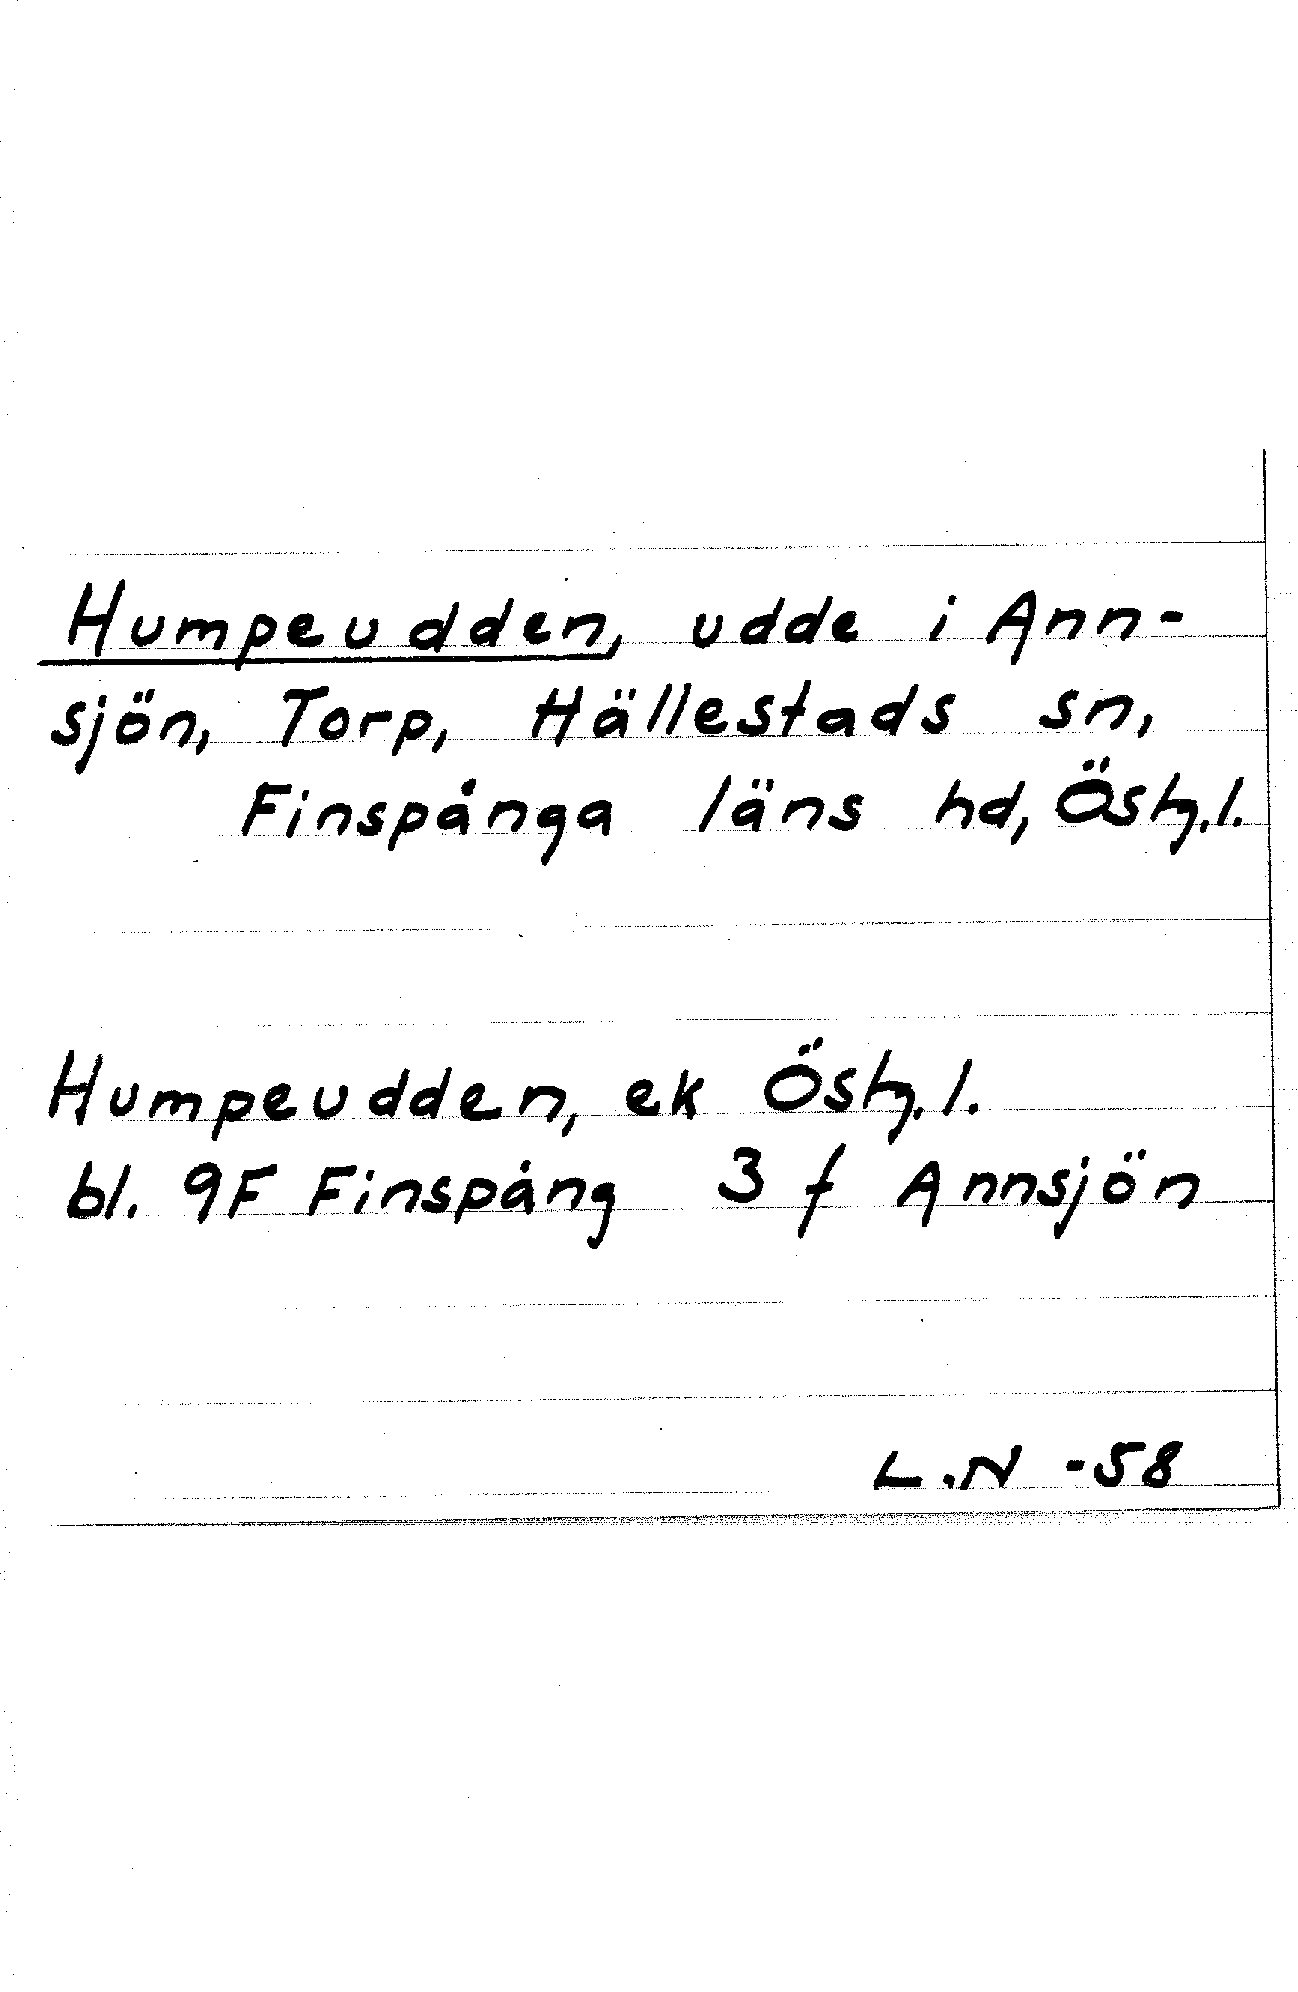 Humpeudden, udde i Ann-
sjön, Torp, Hällestads sn,
Finspånga läns hd, Östg.l.
Humpeudden, ek Östg.l.
bl. 9F Finspång 3 f Annsjön
L.N -58